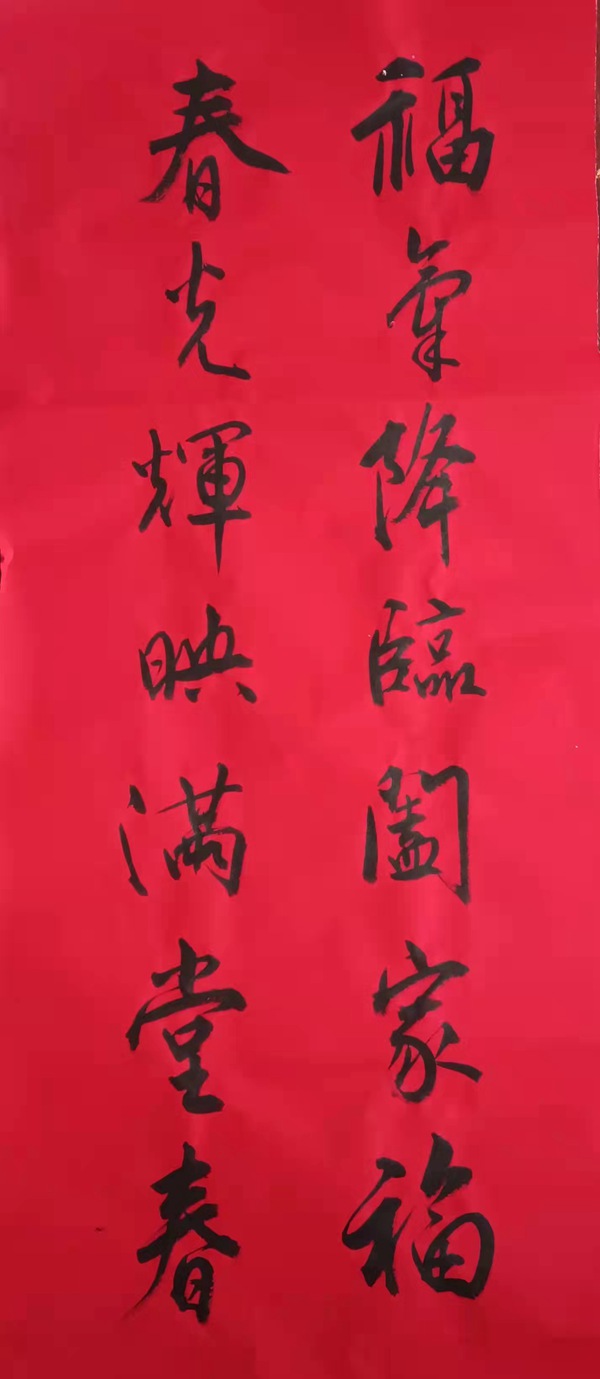 福氣降臨闔家福
春光輝映满堂春